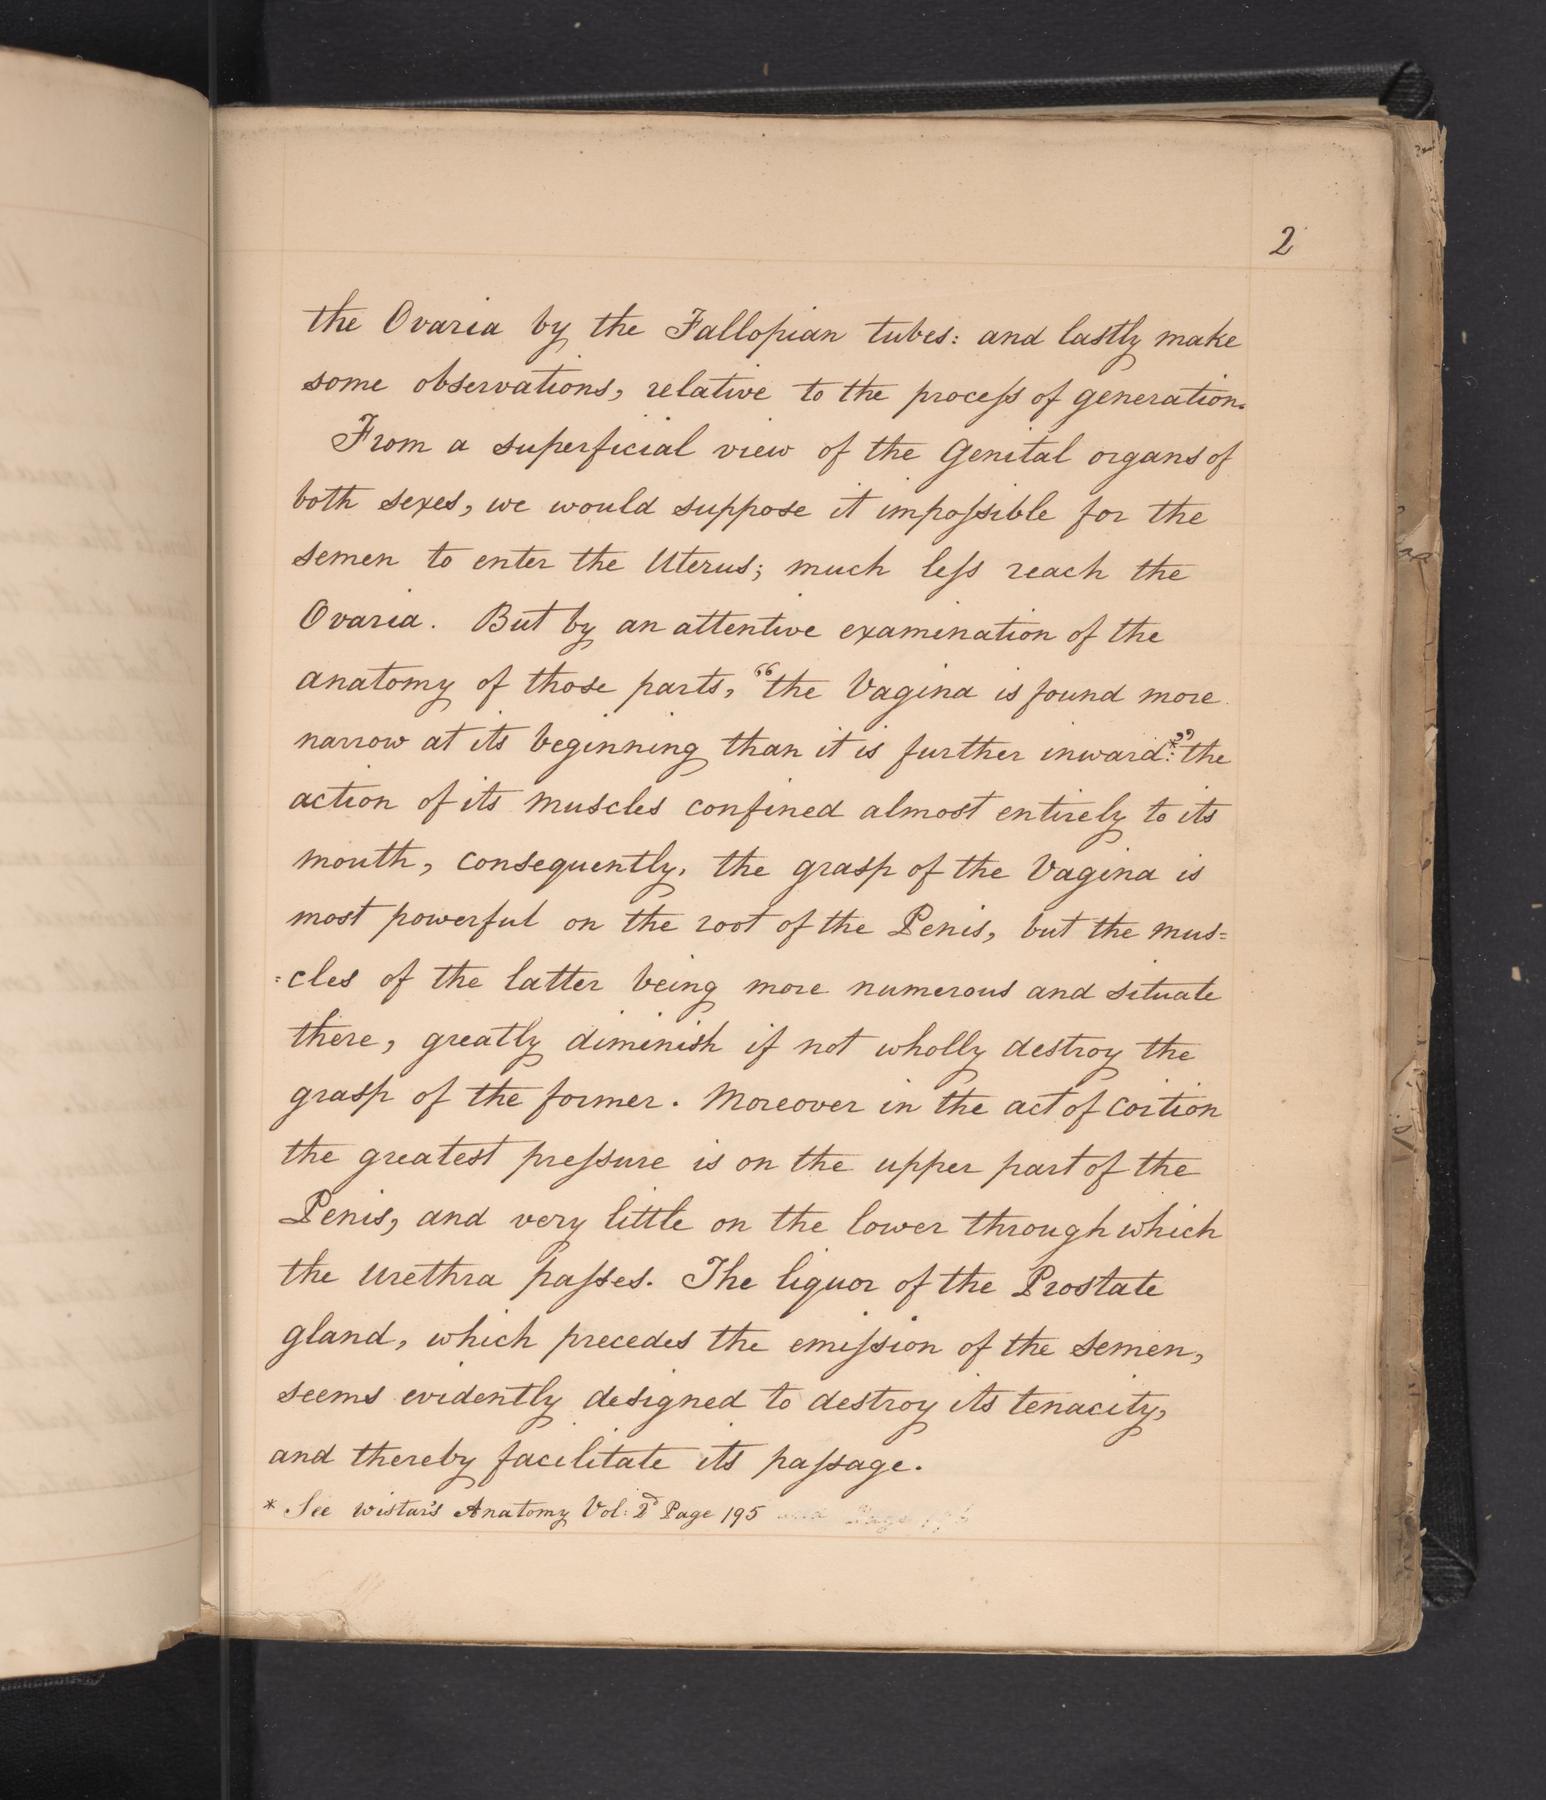 2
the Ovaria by the Fallopian tubes: and lastly make
some observations, relative to the proceſs of generation.
From a superficial view of the Genital organs of
both sexes, we would suppose it impoſsible for the
semen to enter the Uterus; much leſs reach the
Ovaria. But by an attentive examination of the
anatomy of those parts, "the Vagina is found more
narrow at its beginning than it is further inward*:" the
action of its muscles confined almost entirely to its
mouth, consequently, the grasp of the Vagina is
most powerful on the root of the Penis, but the mus=
=cles of the latter being more numerous and situate
there, greatly diminish if not wholly destroy the
grasp of the former. Moreover in the act of coition
the greatest preſsure is on the upper part of the
Penis, and very little on the lower through which
the urethra paſses. The liquor of the Prostate
gland, which precedes the emiſsion of the semen,
seems evidently designed to destroy its tenacity,
and thereby facilitate its paſsage.
* See Wistar's Anatomy Vol: 2d Page 195